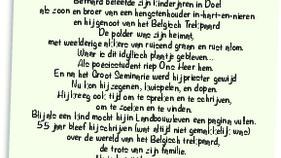 Bernard beleefde zijn kinderjaren in Doel
als zoon en broer van een hengstenhouder in-hart-en-nieren
en hij genoot van het Belgisch Trekpaard
De polder was zijn heimat,
met weelderige akkers van ruisend graan en rust alom.
Waar is dit idyllisch plaatje gebleven...
Als poësisstudent riep Ons Heer hem.
En na het Groot Seminarie werd hij priester gewijd
Nu kon hij zegenen, knipselen, en dopen.
Hij kreeg ook tijd om te spreken en te schrijven,
om te zoeken en te vinden.
Blij als een kind mocht hij in Landbouwleven een pagina vullen.
55 jaar bleef hij schrijven (wat altijd niet gemakkelijk was)
over de wereld van het Belgisch trekpaard,
de trots van zijn familie.